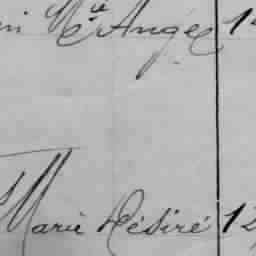 in Mie Angèe 1
Marie Désiré 12